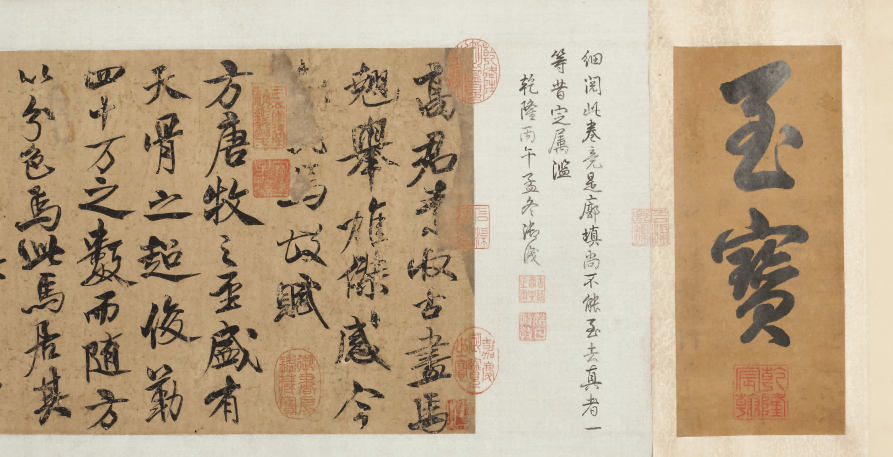 至寶
乾隆宸翰
細閱此卷竟是廓填尚不能至去真者一
等昔定屬濫
乾隆丙午孟冬御識
高君素收古畫馬
翹舉雄傑感今
馬故賦
方唐牧之至盛有
天骨之超俊勒
四十万之數而随方
以分色焉此馬居其